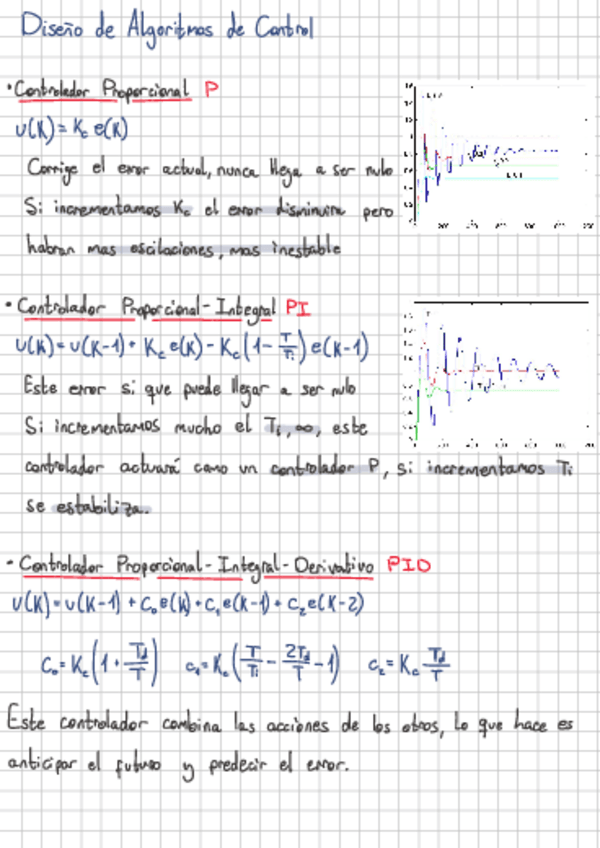 Diseño de Algoritmos de Control
• Controlador Proporcional P
u(K) = Kc e(K)
Corrige el error actual, nunca llega a ser nulo
Si incrementamos Kc el error disminuira pero
habran mas oscilaciones, mas inestable
• Controlador Proporcional - Integral PI
u(K) = u(K-1) + Kc e(K) - Kc (1 - T/Ti) e(K-1)
Este error si que puede llegar a ser nulo
Si incrementamos mucho el Ti, ∞, este
controlador actuará como un controlador P, si incrementamos Ti
se estabiliza.
• Controlador Proporcional - Integral - Derivativo PID
u(K) = u(K-1) + C0 e(K) + C1 e(K-1) + C2 e(K-2)
C0 = Kc (1 + Td/T) C1 = Kc (T/Ti - 2Td/T - 1) C2 = Kc Td/T
Este controlador combina las acciones de los otros, lo que hace es
anticipar el futuro y predecir el error.